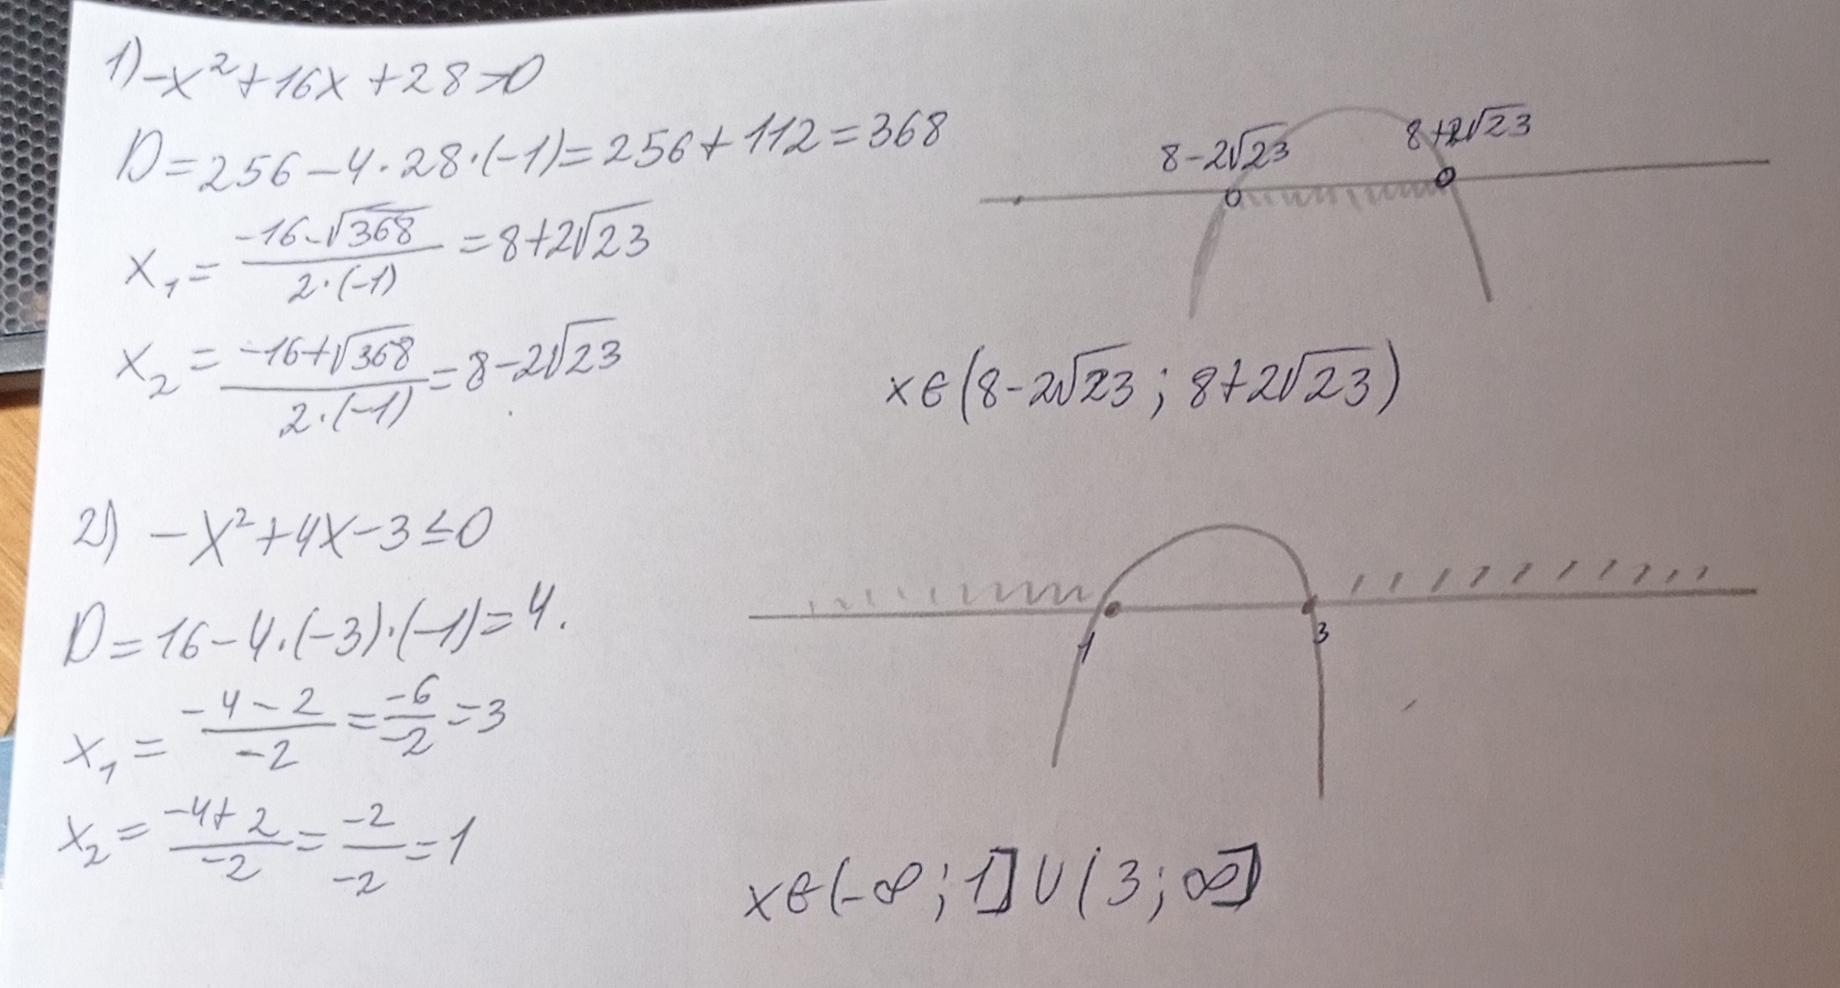 1) -x² + 16x + 28 > 0
D = 256 - 4 · 28 · (-1) = 256 + 112 = 368
x₁ = (-16 - √368) / (2 · (-1)) = 8 + 2√23
x₂ = (-16 + √368) / (2 · (-1)) = 8 - 2√23
8 - 2√23
8 + 2√23
x ∈ (8 - 2√23 ; 8 + 2√23)
2) -x² + 4x - 3 ≤ 0
D = 16 - 4 · (-3) · (-1) = 4.
x₁ = (-4 - 2) / (-2) = (-6) / (-2) = 3
x₂ = (-4 + 2) / (-2) = (-2) / (-2) = 1
1
3
x ∈ (-∞ ; 1] ∪ (3 ; ∞]